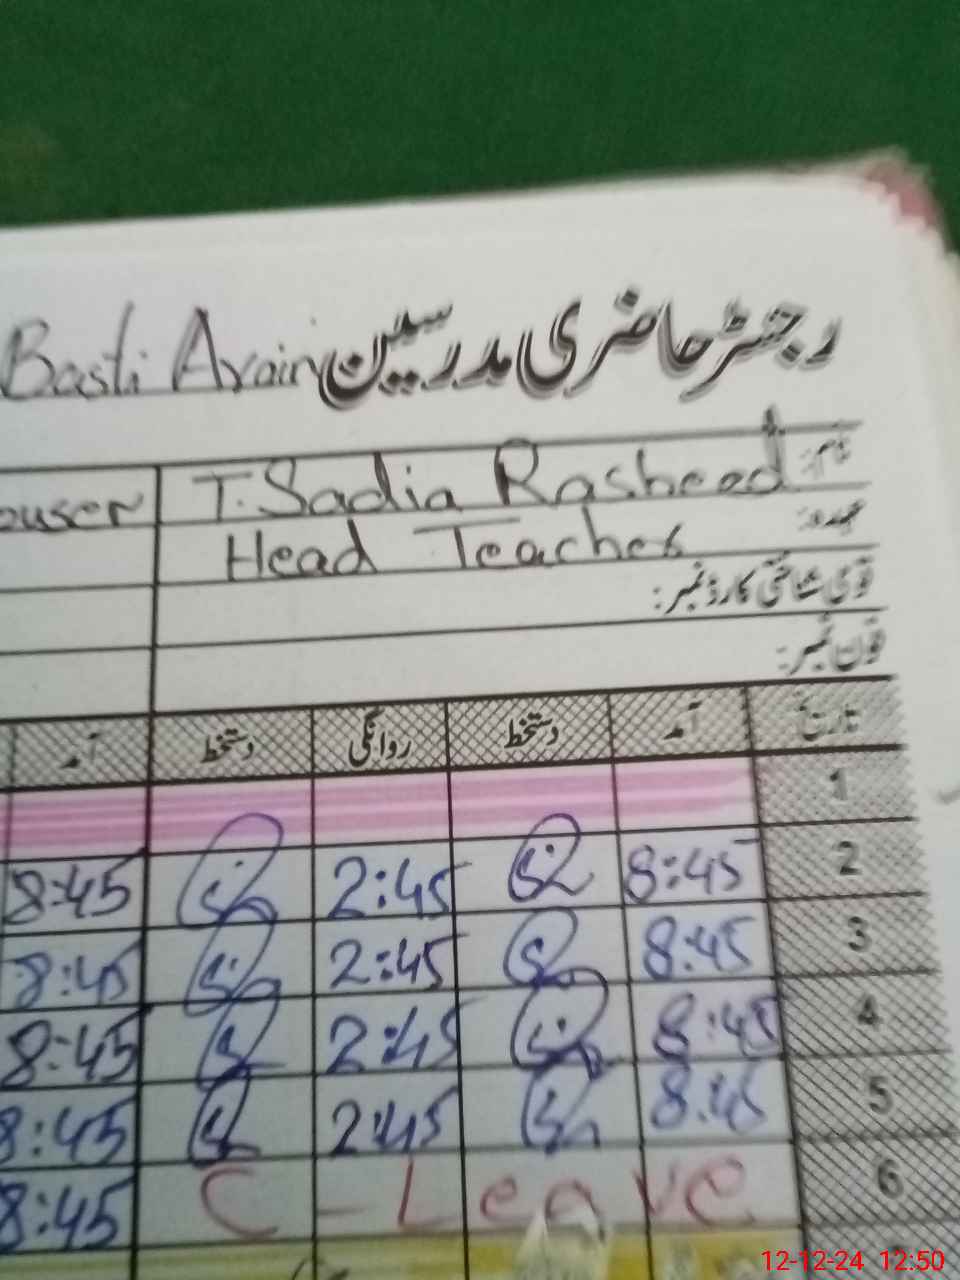 Basti Arain رجسٹر حاضری مدرسین
T. Sadia Rasheed نام:
Head Teacher عہدہ:
قومی شناختی کارڈ نمبر:
فون نمبر:
تاریخ آمد دستخط روانگی دستخط آمد
1
2 8:45 2:45 8:45
3 8:45 2:45 8:45
4 8:45 2:45 8:45
5 8:45 2:45 8:45
6 C-Leave 8:45
12-12-24 12:50